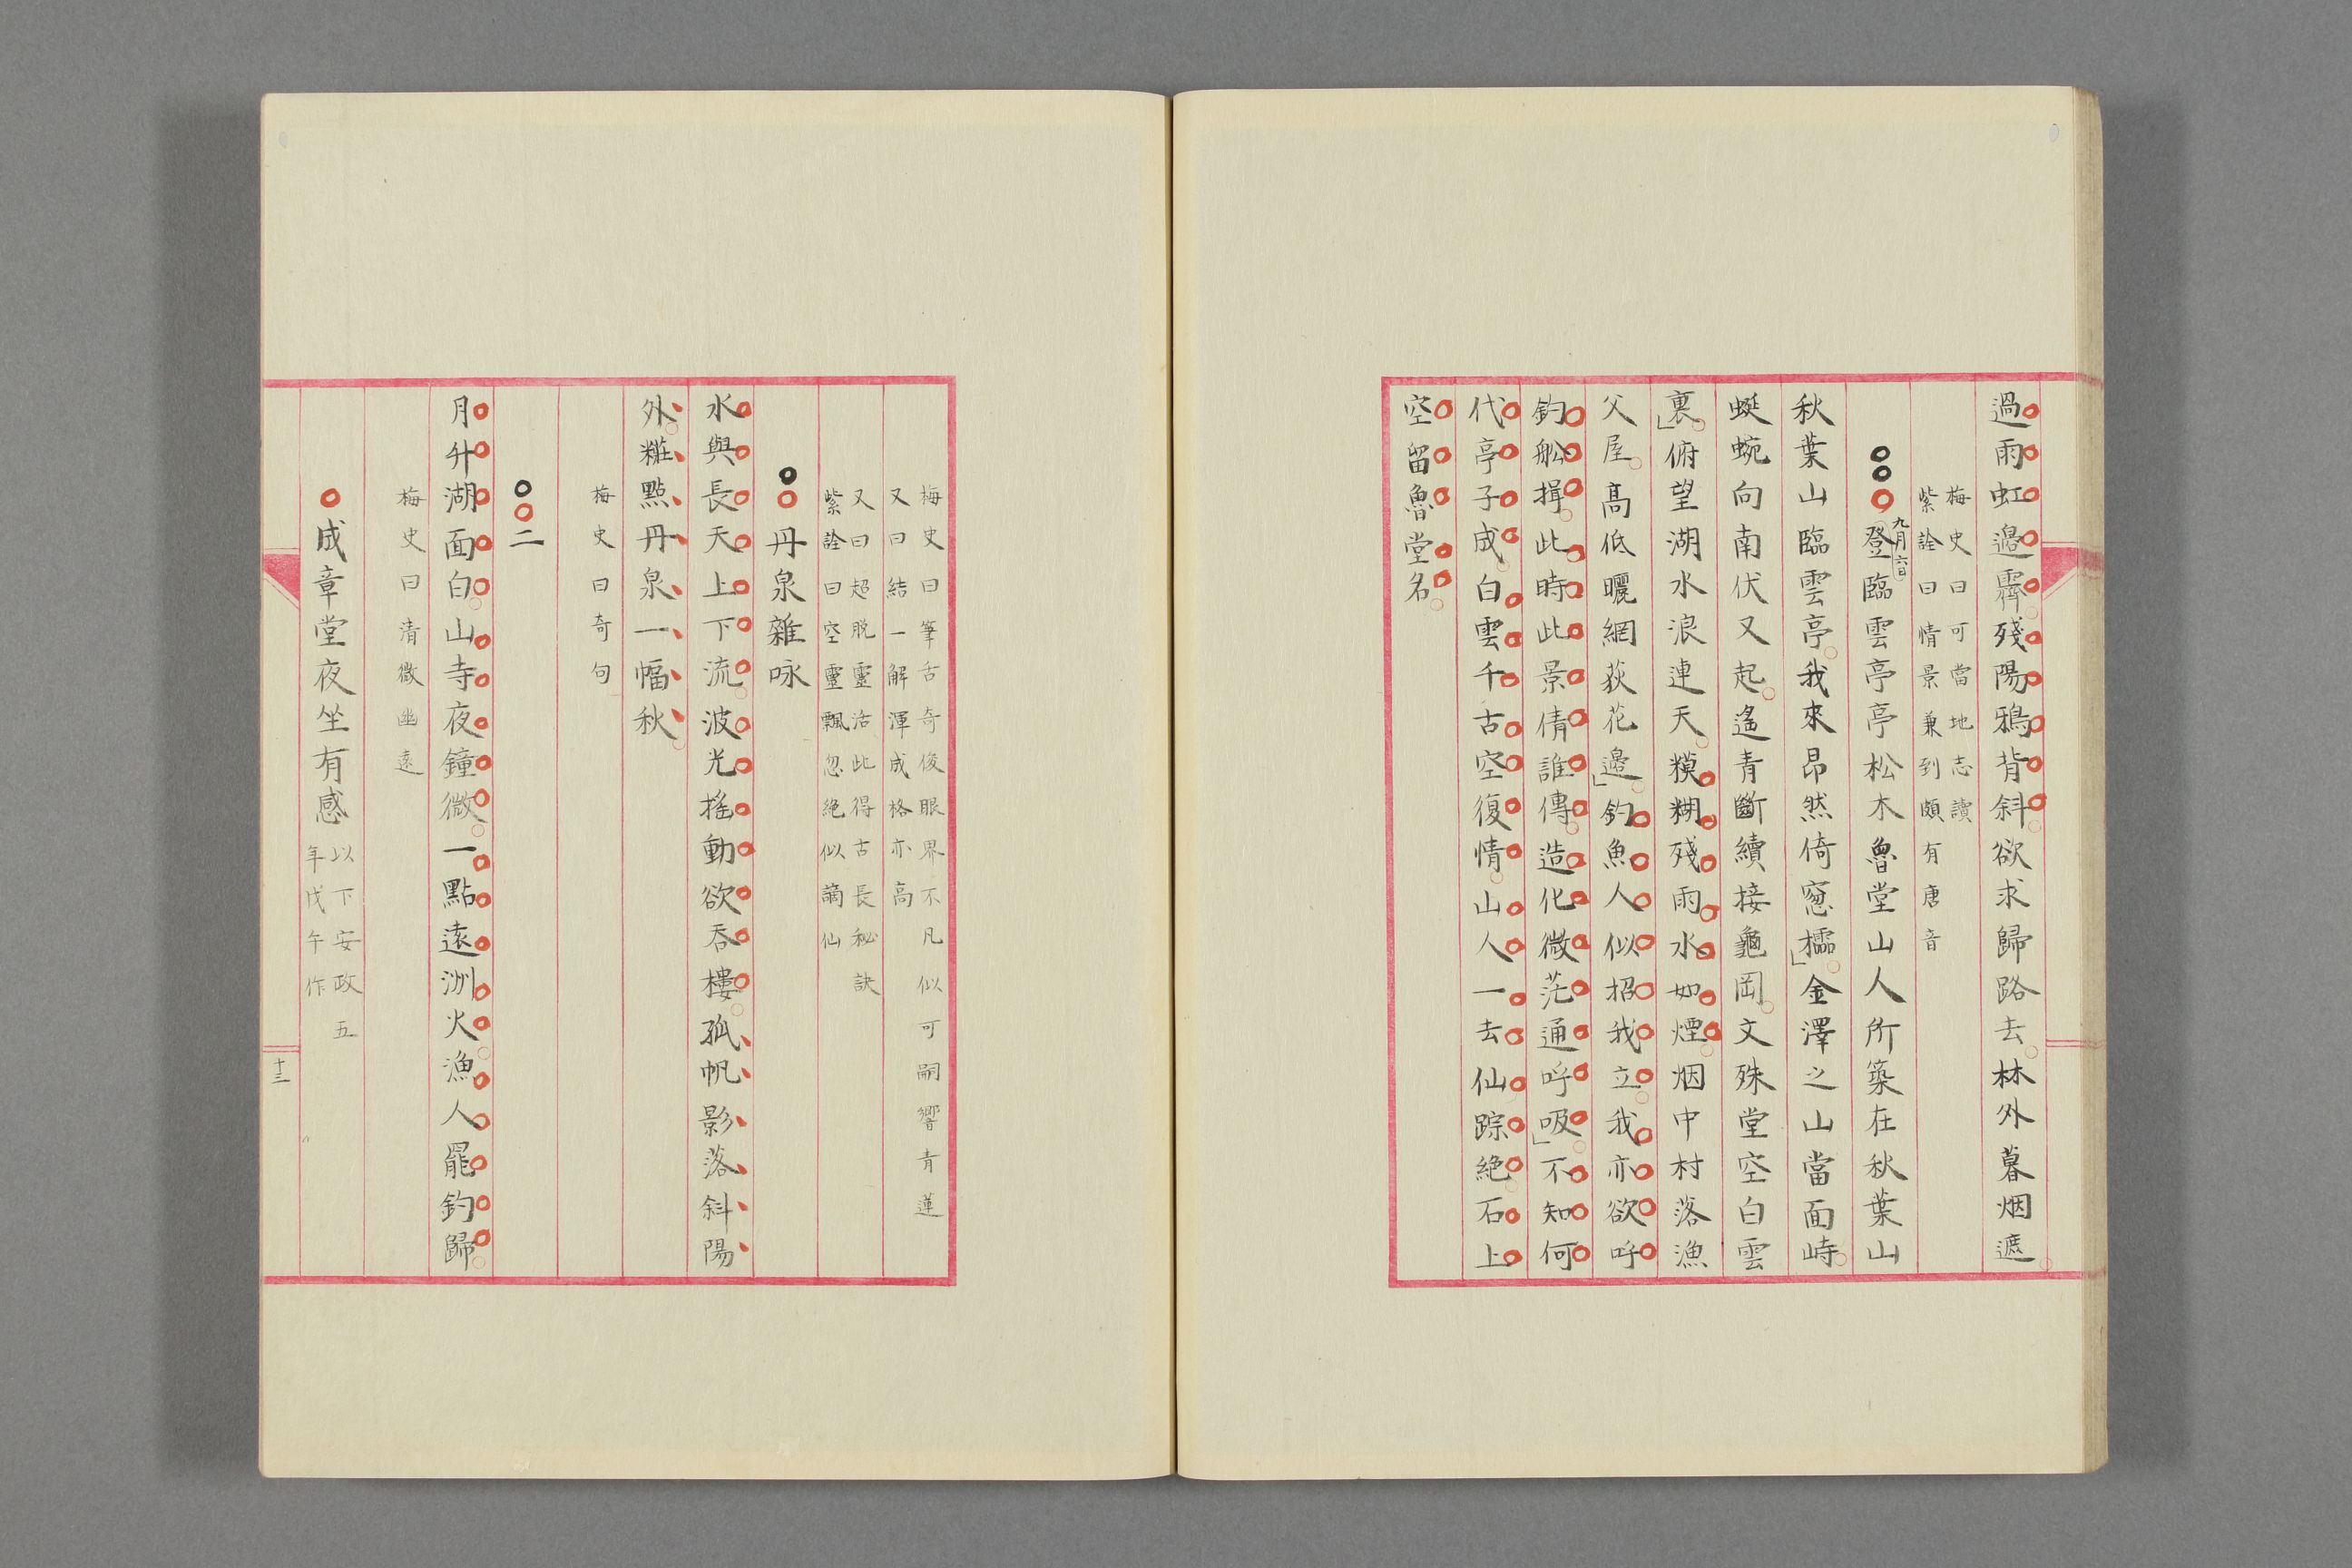 過雨虹邉霽殘陽鴉背斜欲求歸路去林外暮烟遮
梅史曰可當地志讀
紫詮曰情景兼到頗有唐音
九月六日
登臨雲亭亭松木魯堂山人所築在秋葉山
秋葉山臨雲亭我來昂然倚窻櫺金澤之山當面峙
蜒蜿向南伏又起遙青斷續接龜岡文殊堂空白雲
裏俯望湖水浪連天糢糊殘雨水如煙烟中村落漁
父屋高低曬網荻花邉釣魚人似招我立我亦欲呼
釣舩揖此時此景倩誰傳造化微茫通呼吸不知何
代亭子成白雲千古空復情山人一去仙踪絶石上
空留魯堂名
梅史曰筆舌奇俊眼界不凡似可嗣響青蓮
又曰結一解渾成格亦高
又曰超脱靈活此得古長秘訣
紫詮曰空靈飄忽絶似謫仙
丹泉雜咏
水與長天上下流波光搖動欲吞樓孤帆影落斜陽
外糚點丹泉一幅秋
梅史曰奇句
二
月升湖面白山寺夜鐘微一點遠洲火漁人罷釣歸
梅史曰清微幽遠
成章堂夜坐有感
以下安政五
年戊午作
十三